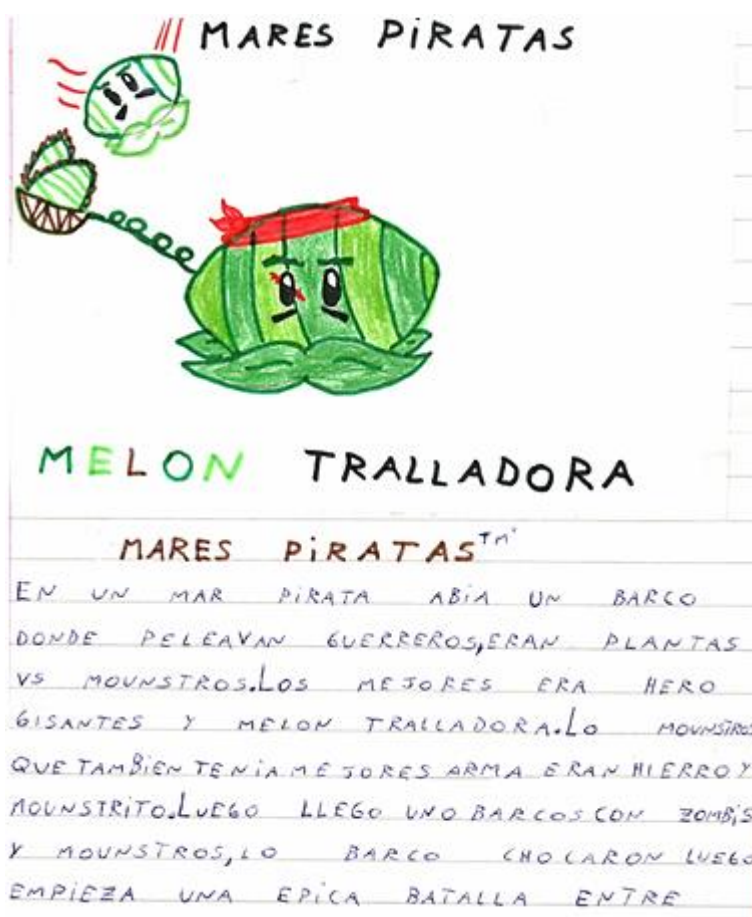 MARES PiRATAS
MELON TRALLADORA
MARES PiRATAS TM
EN UN MAR PIRATA ABiA UN BARCO
DONDE PELEAVAN GUERREROS,ERAN PLANTAS
VS MOUNSTROS.LOS MEJORES ERA HERO
GISANTES Y MELON TRALLADORA.LO MOUNSTROS
QUE TAMBiEN TENiA MEJORES ARMA ERAN HIERRO Y
MOUNSTRiTO.LUEGO LLEGO UNO BARCOS CON ZOMBiS
Y MOUNSTROS,LO BARCO CHOCARON LUEGO
EMPiEZA UNA EPiCA BATALLA ENTRE